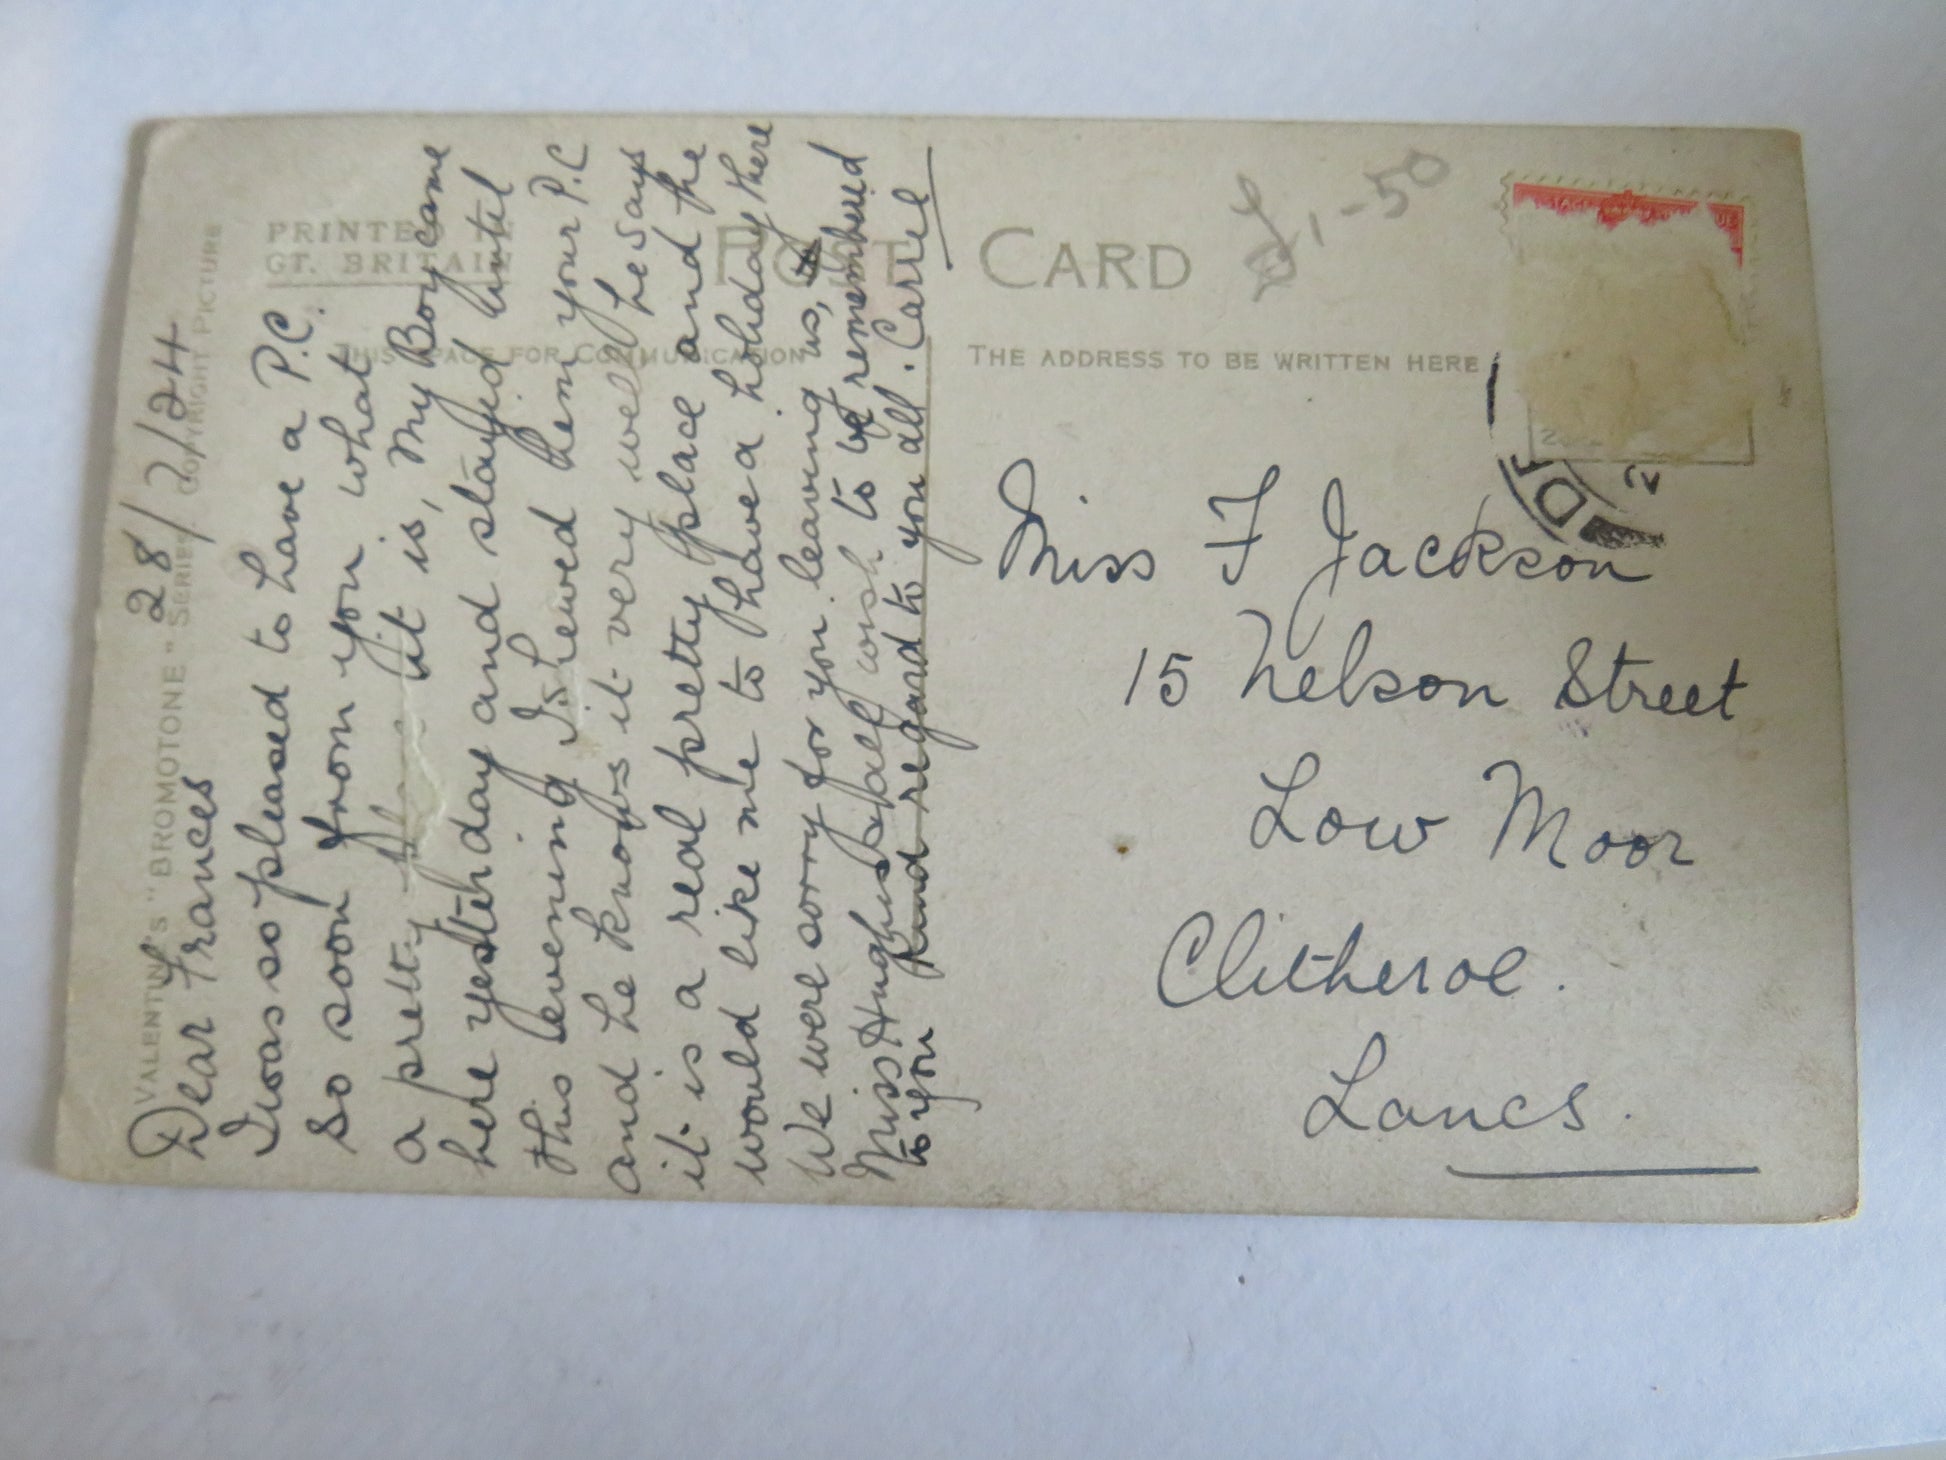 VALENTINE'S "BROMOTONE" SERIES COPYRIGHT PICTURE
PRINTED IN
GT. BRITAIN
POST CARD
£1-50
THIS SPACE FOR COMMUNICATION
THE ADDRESS TO BE WRITTEN HERE
28/2/24
Dear Frances
I was so pleased to have a P.C.
so soon from you what
a pretty it is, My Boy came
here yesterday and stayed until
this evening I shewed him your P.C
and he knows it very well he says
it is a real pretty place and the
would like me to have a holiday there
We were sorry for you leaving us,
Miss Hughes & staff wish to be remembered
to you kind regard to you all. Carrie
Miss F Jackson
15 Nelson Street
Low Moor
Clitheroe.
Lancs.